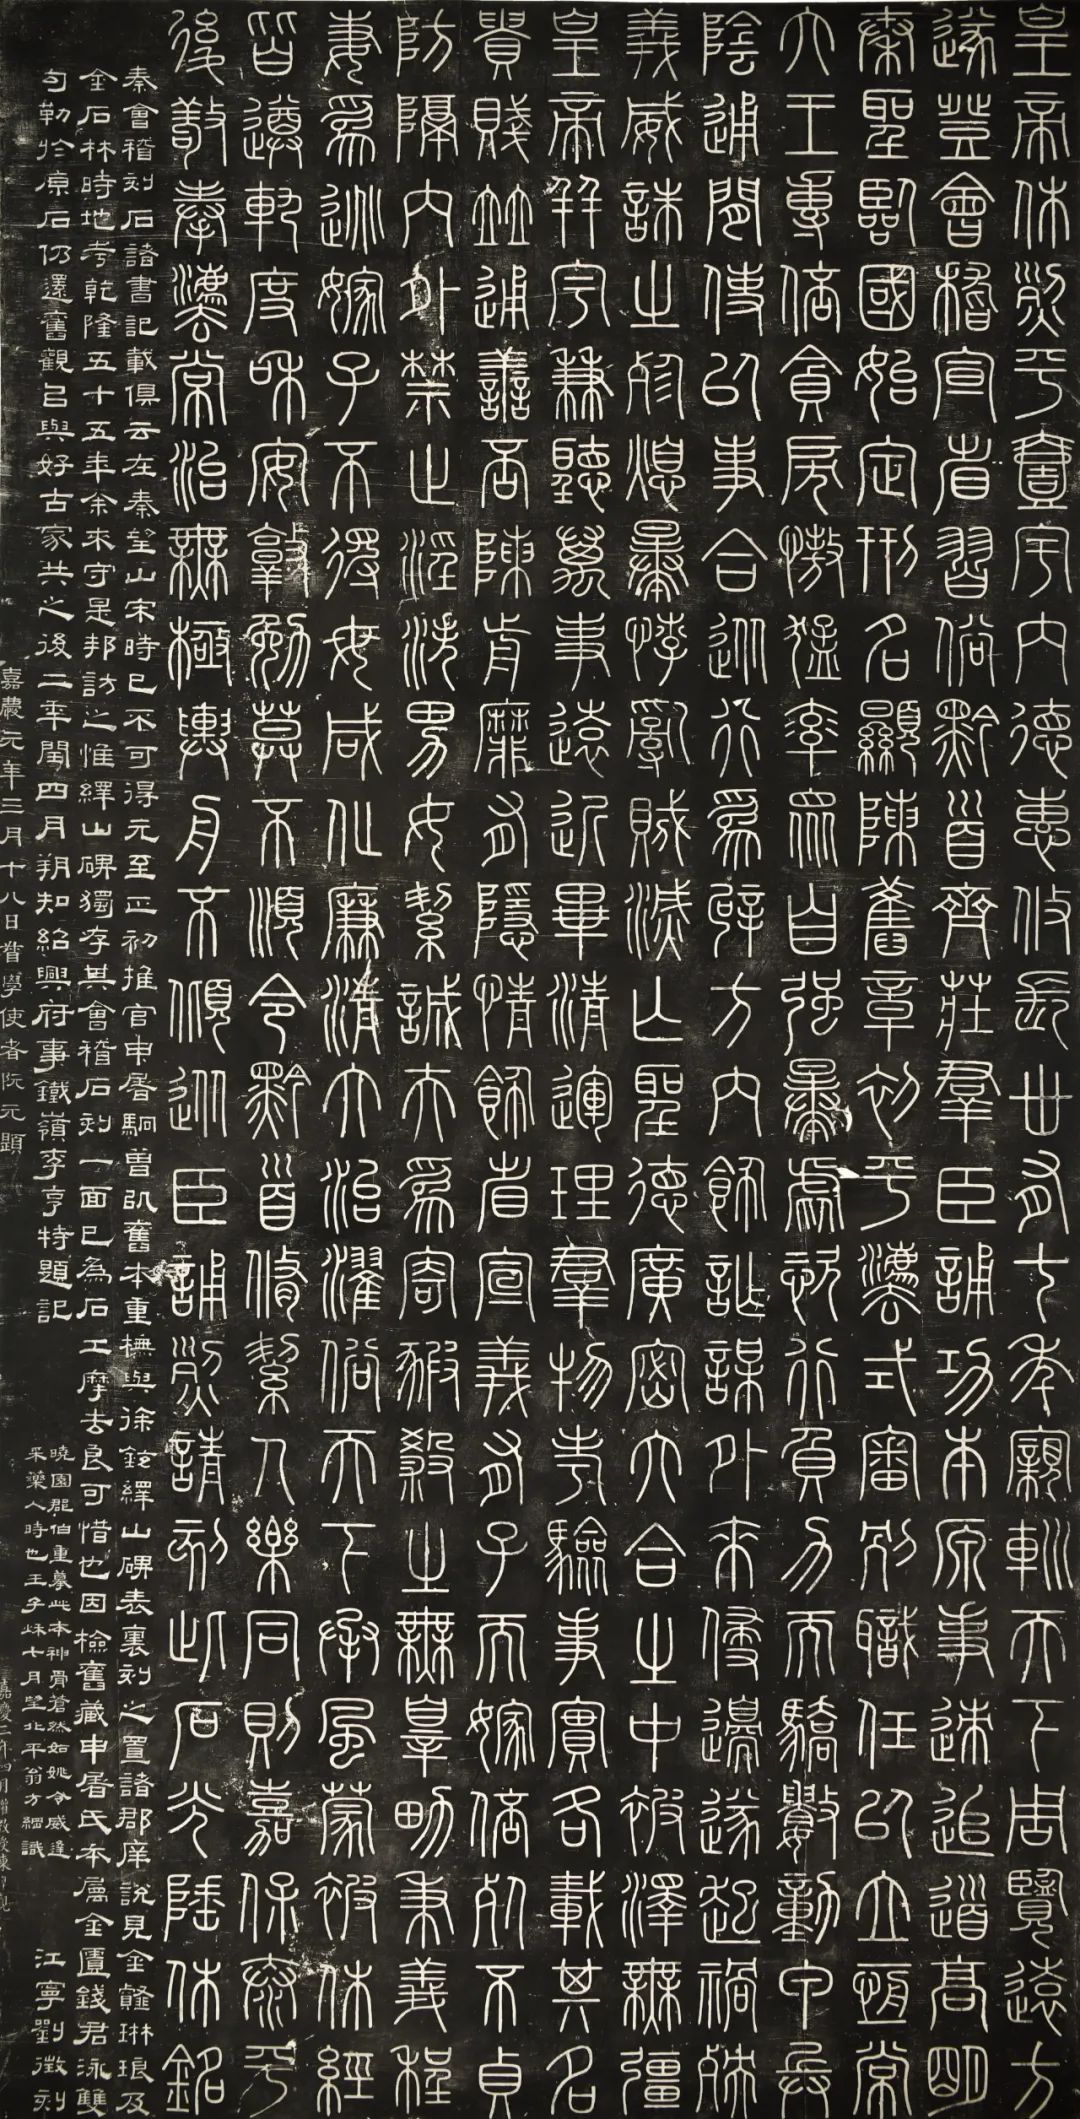 皇帝休烈平壹宇內德惠攸長卅有七年親巡天下周覽遠方
遂登會稽宣省習俗黔首齊莊羣臣誦功本原事迹追道高明
秦聖臨國始定刑名顯陳舊章初平灋式審別職任以立恆常
六王專倍貪戾慠猛率眾自強暴虐恣行負力而驕數動甲兵
陰通閒使以事合從行為辟方內飾詐謀外來侵邊遂起禍殃
義威誅之殄熄暴悖亂賊滅亡聖德廣密六合之中被澤無疆
皇帝并宇兼聽萬事遠近畢清運理羣物考驗事實各載其名
貴賤並通善否陳前靡有隱情飾省宣義有子而嫁倍死不貞
防隔內外禁止淫泆男女絜誠夫為寄豭殺之無辠男秉義程
妻為逃嫁子不得母咸化廉清大治濯俗天下承風蒙被休經
皆遵軌度和安敦勉莫不順令黔首脩絜人樂同則嘉保泰平
後敬奉灋常治無極輿舟不傾從臣誦烈請刻此石光陲休銘
秦會稽刻石諸書記載俱云在秦望山宋時已不可得元至正初推官申屠駉曾㠯舊本重橅與徐鉉繹山碑表裏刻之置諸郡庠說見金薤琳琅及
金石林時地考乾隆五十五年余來守是邦訪之惟繹山碑獨存其會稽石刻一面已為石工摩去良可惜也因檢舊藏申屠氏本屬金匱錢君泳雙
勾勒於原石仍還舊觀㠯與好古家共之後二年閏四月朔知紹興府事鐵嶺李亨特題記 江寧劉徵刻
曉園郡伯重摹此本神骨蒼然如姚令威逢
采藥人時也壬子秌七月望北平翁方綱識
嘉慶元年三月十八日督學使者阮元題
嘉慶二年四月